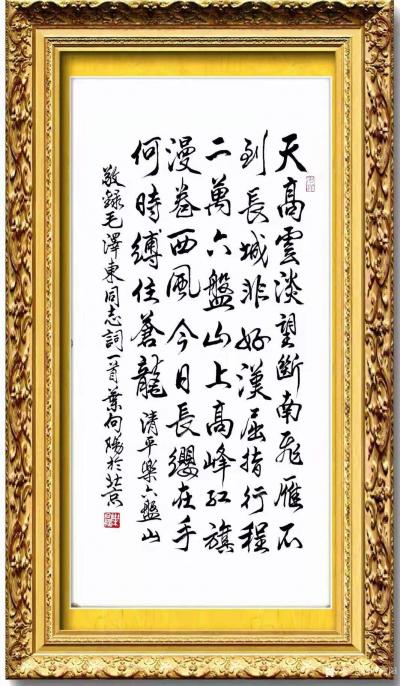 天高雲淡望斷南飛雁不
到長城非好漢屈指行程
二萬六盤山上高峰紅旗
漫卷西風今日長纓在手
何時縛住蒼龍 清平樂六盤山
敬録毛澤東同志詞一首葉向陽於北京